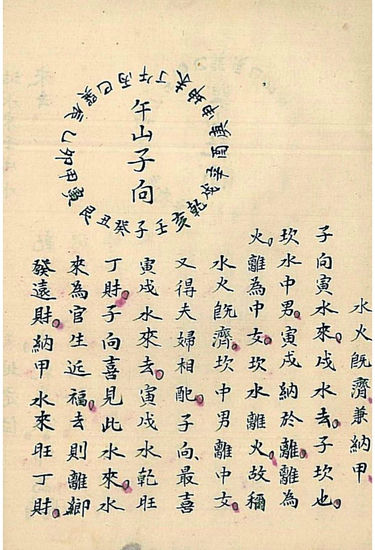 午山子向
午丁未坤申庚酉辛戌乾亥壬子癸丑艮寅甲卯乙辰巽巳丙
水火既濟兼納甲
子向寅水來。戌水去。子坎也。
坎水中男。寅戌納於離。離為
火。離為中女。坎水離火。故稱
水火既濟。坎中男離中女。
又得夫婦相配。子向最喜
寅戌水來去。寅戌水乾旺
丁財。子向喜見此水來。水
來為官生近福。去則離鄉
發遠財。納甲水來旺丁財。